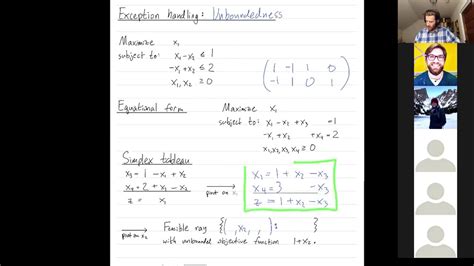 Exception handling: Unboundedness
Maximize x₁
subject to: x₁ - x₂ ≤ 1
-x₁ + x₂ ≤ 2
x₁, x₂ ≥ 0
( 1 -1 1 0
-1 1 0 1 )
Equational form
Maximize x₁
subject to: x₁ - x₂ + x₃ = 1
-x₁ + x₂ + x₄ = 2
x₁, x₂, x₃, x₄ ≥ 0
Simplex tableau
x₃ = 1 - x₁ + x₂
x₄ = 2 + x₁ - x₂
z = x₁
pivot on x₁ →
x₁ = 1 + x₂ - x₃
x₄ = 3 - x₃
z = 1 + x₂ - x₃
pivot on x₂ → Feasible ray {( , x₂, , ):
with unbounded objective function 1 + x₂.